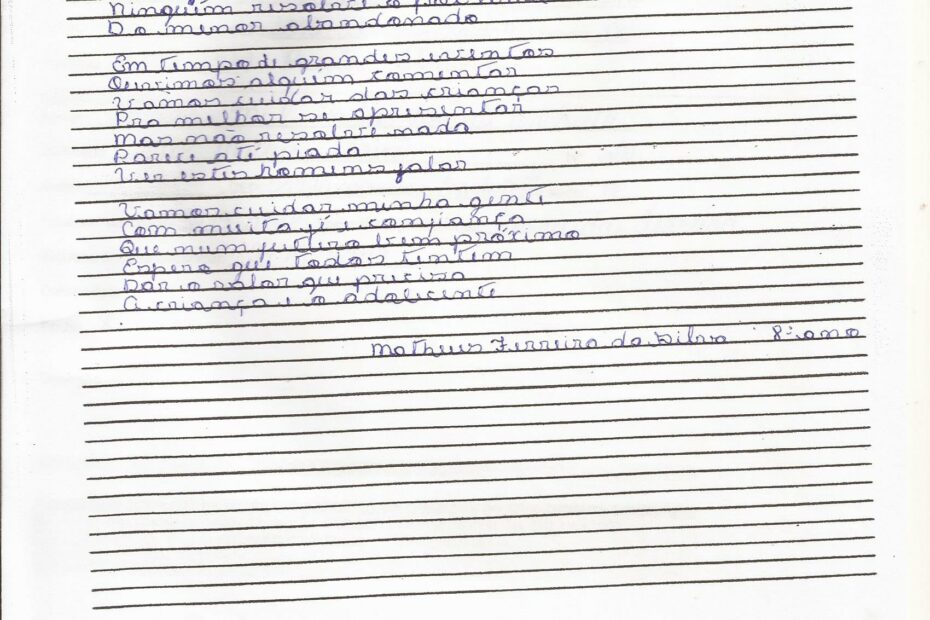 Ninguém resolve o
Do menor abandonado
Em tempo de grandes eventos
Ouvimos alguém comentar
Vamos cuidar das crianças
Pra melhor se apresentar
Mas não resolve nada
Parece até piada
Ver estes homens falar
Vamos cuidar minha gente
Com muita fé e confiança
Que num futuro bem próximo
Espero que todos tentem
Dar o valor que precisa
A criança e o adolecente
Matheus Ferreira da Silva 8º ano